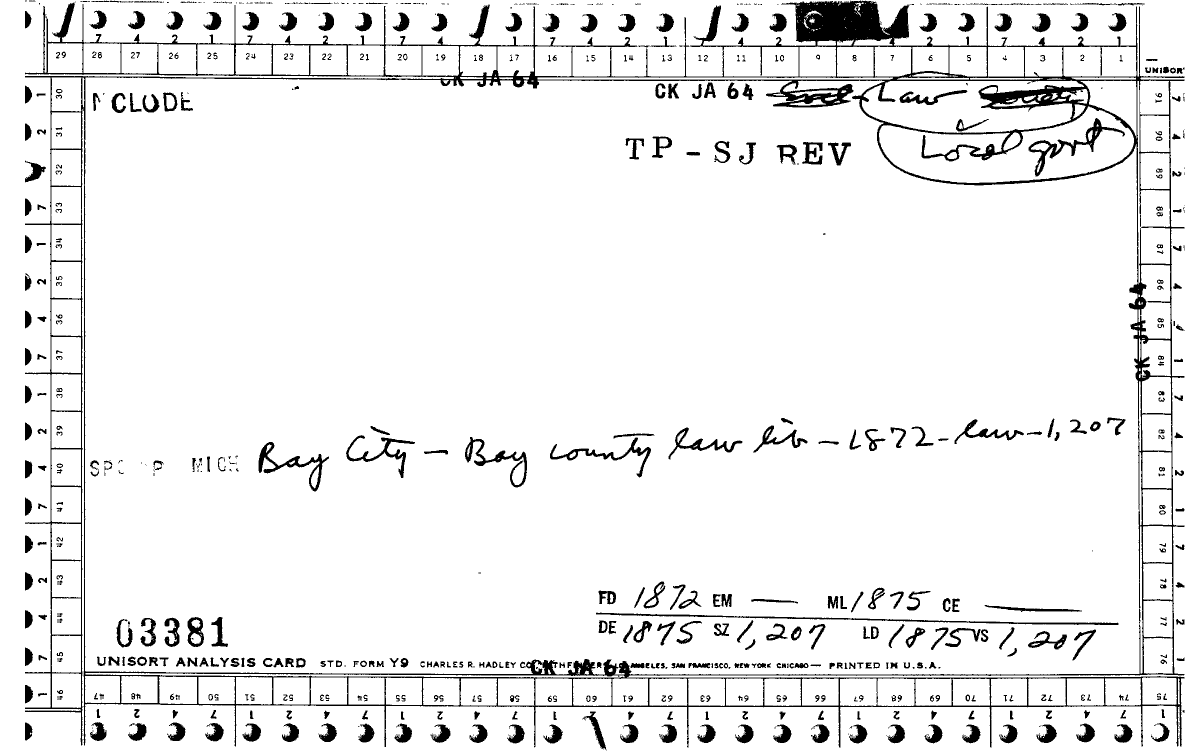 7 4 2 1 7 4 2 1 7 4 2 1 7 4 2 1 7 4 2 1 7 4 2 1 7 4 2 1
29 28 27 26 25 24 23 22 21 20 19 18 17 16 15 14 13 12 11 10 9 8 7 6 5 4 3 2 1
UNISORT
CK JA 64
NCLUDE
CK JA 64 Law
TP-SJ REV Local govt
CK JA 64
SPC MICH Bay City - Bay county law lib - 1872 - law - 1,207
FD 1872 EM — ML 1875 CE —
DE 1875 SZ 1,207 LD 1875 VS 1,207
03381
UNISORT ANALYSIS CARD STD. FORM Y9 CHARLES R. HADLEY CO. ANGELES, SAN FRANCISCO, NEW YORK CHICAGO — PRINTED IN U.S.A.
CK JA 64
30 31 32 33 34 35 36 37 38 39 40 41 42 43 44 45 46
91 90 89 88 87 86 85 84 83 82 81 80 79 78 77 76
47 48 49 50 51 52 53 54 55 56 57 58 59 60 61 62 63 64 65 66 67 68 69 70 71 72 73 74 75
1 2 4 7 1 2 4 7 1 2 4 7 1 2 4 7 1 2 4 7 1 2 4 7 1 2 4 7 1